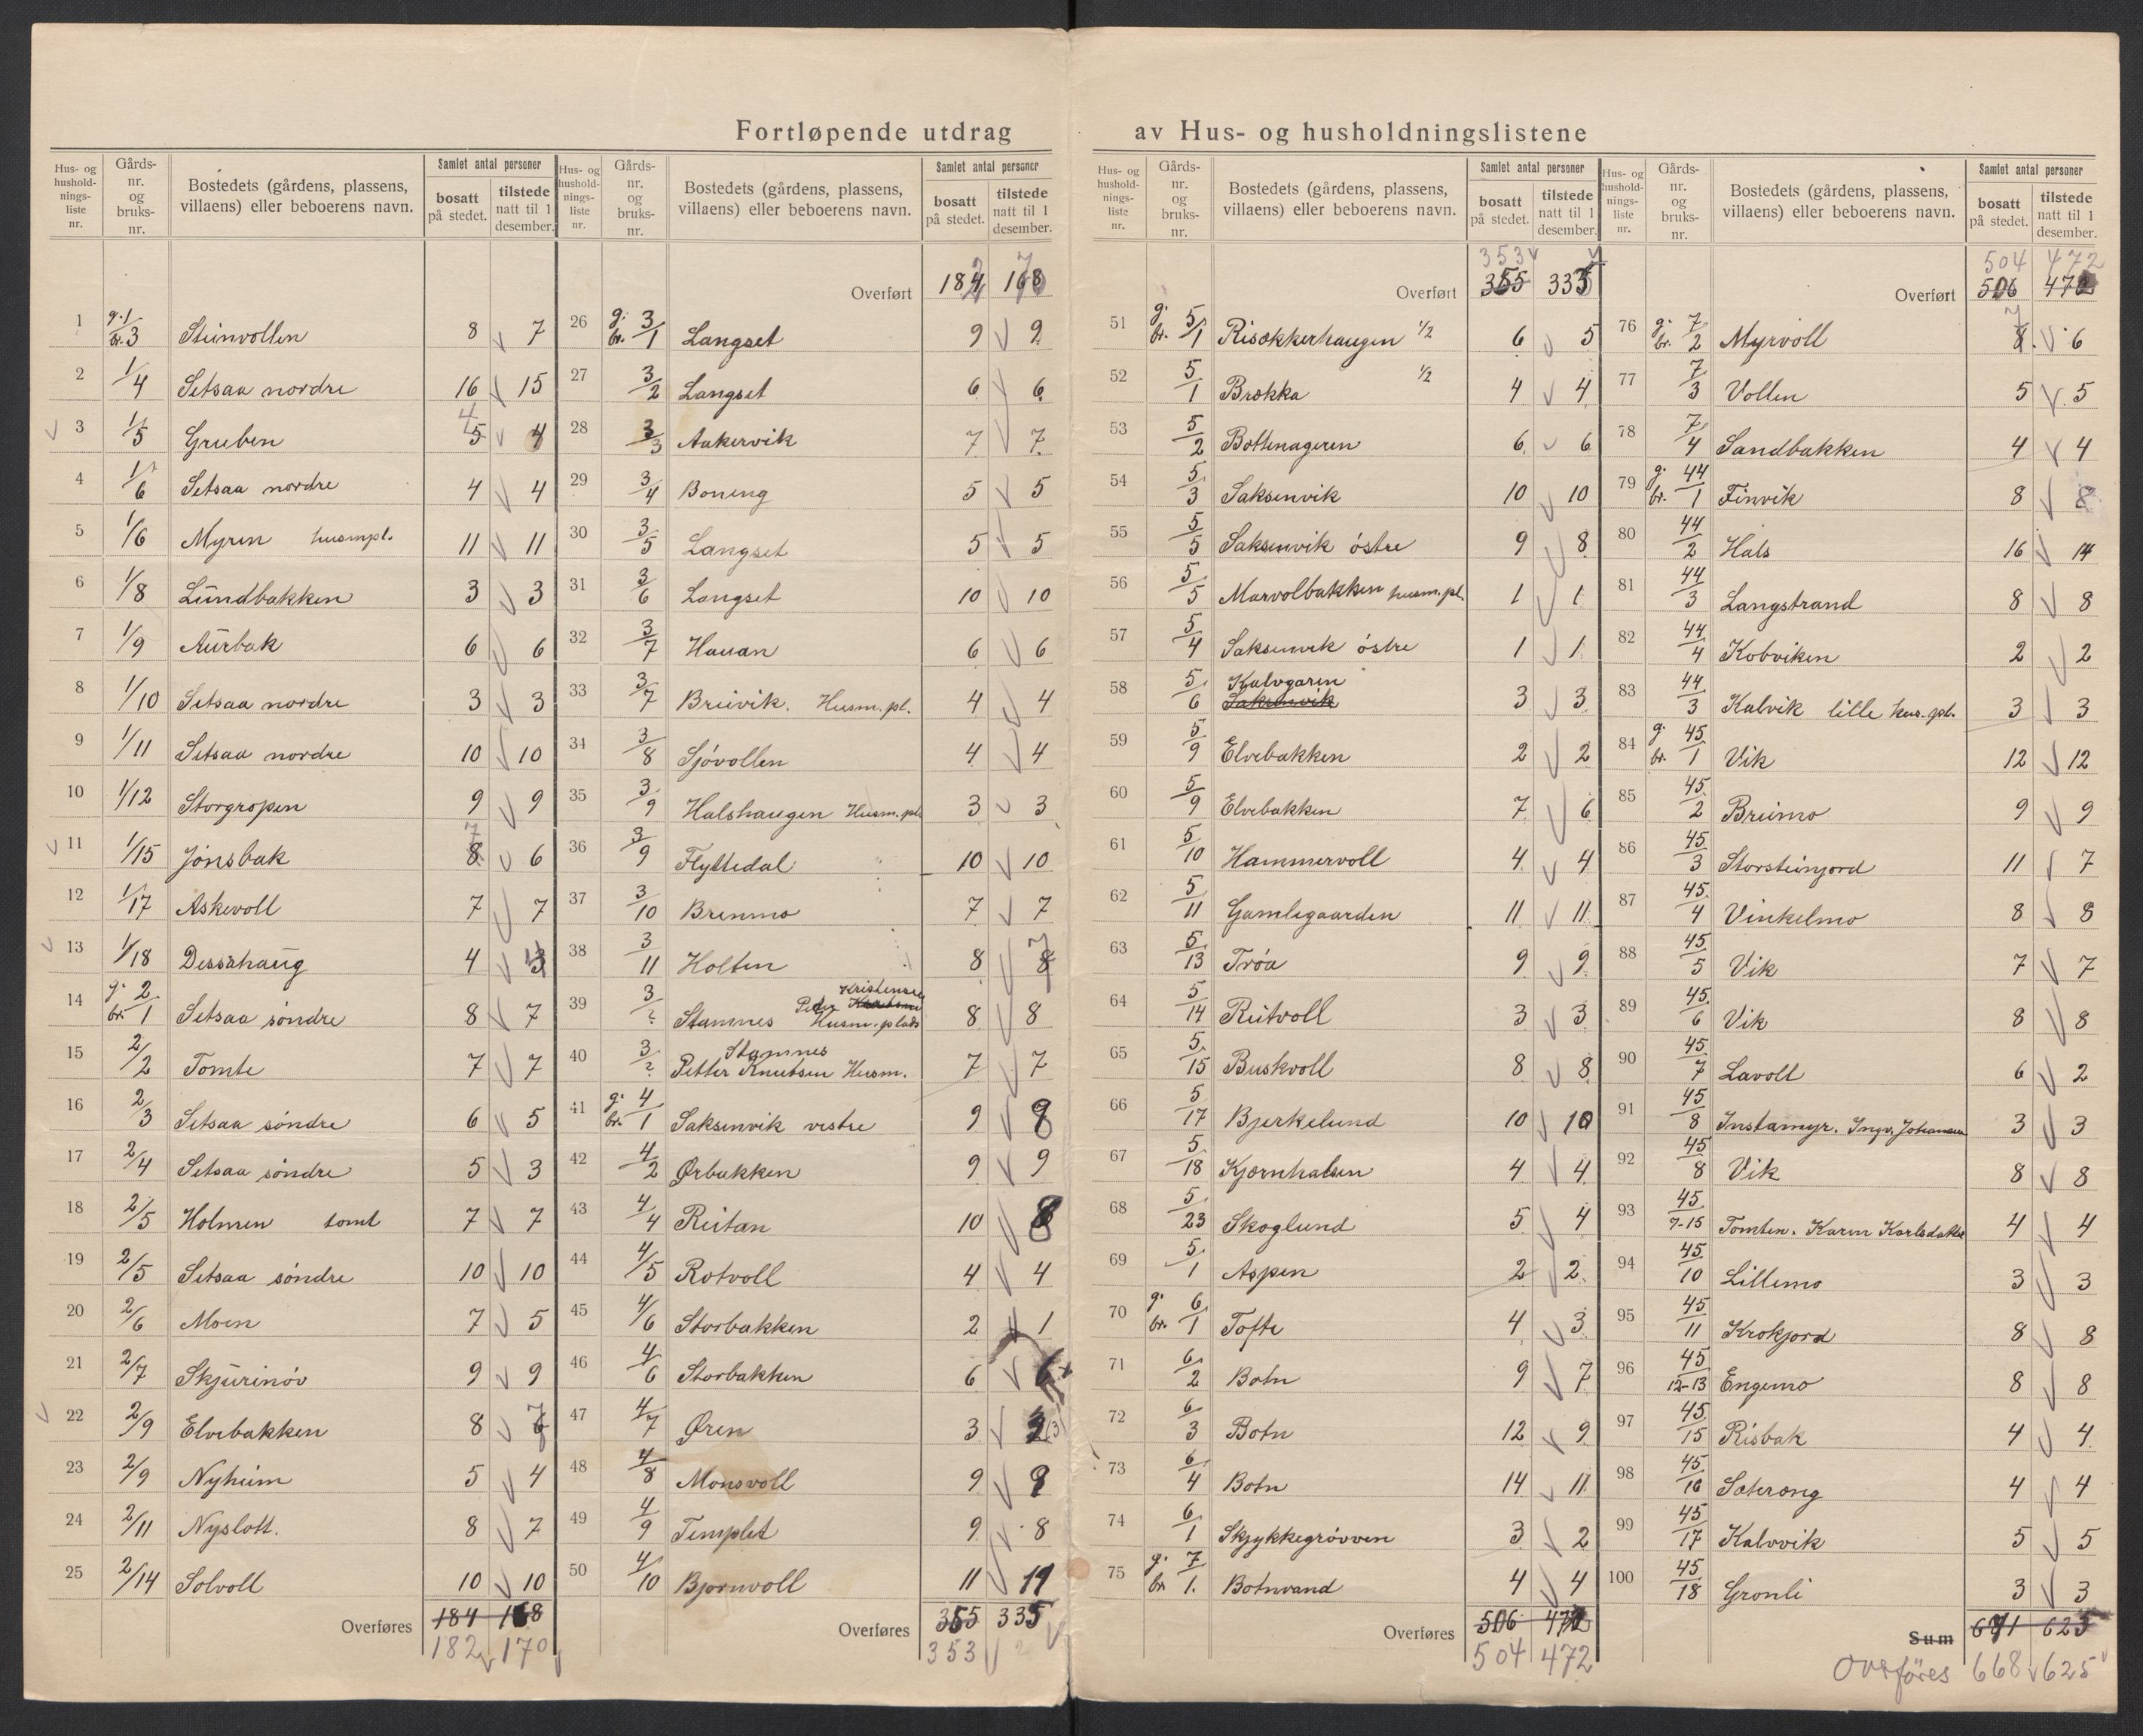 Fortløpende utdrag av Hus- og husholdningslistene
Hus- og hushold-nings-liste nr. Gårds-nr. og bruks-nr. Bostedets (gårdens, plassens, villaens) eller beboerens navn. Samlet antal personer bosatt på stedet. tilstede natt til 1 desember.
1 g. 1/br. 3 Steinvollen 8 7
2 1/4 Setsaa nordre 16 15
3 1/5 Gruben 5 4 4
4 1/6 Setsaa nordre 4 4
5 1/6 Myren husmpl. 11 11
6 1/8 Lundbakken 3 3
7 1/9 Aurbak 6 6
8 1/10 Setsaa nordre 3 3
9 1/11 Setsaa nordre 10 10
10 1/12 Storgropen 9 9
11 1/15 Jonsbak 8 7 6
12 1/17 Askevoll 7 7
13 1/18 Dessahaug 4 3
14 g. 2/br. 1 Setsaa søndre 8 7
15 2/2 Tomte 7 7
16 2/3 Setsaa søndre 6 5
17 2/4 Setsaa søndre 5 3
18 2/5 Holmen tomt 7 7
19 2/5 Setsaa søndre 10 10
20 2/6 Moen 7 5
21 2/7 Skjurinöv 9 9
22 2/9 Elvebakken 8 7
23 2/9 Nyheim 5 4
24 2/11 Nyslott. 8 7
25 2/14 Solvoll 10 10
Overføres 184 168
182 170
Hus- og hushold-nings-liste nr. Gårds-nr. og bruks-nr. Bostedets (gårdens, plassens, villaens) eller beboerens navn. Samlet antal personer bosatt på stedet. tilstede natt til 1 desember.
Overført 184 168
26 g. 3/br. 1 Langset 9 9
27 3/2 Langset 6 6
28 3/3 Aakervik 7 7
29 3/4 Boneng 5 5
30 3/5 Langset 5 5
31 3/6 Langset 10 10
32 3/7 Hauan 6 6
33 3/7 Breivik. Husm. pl. 4 4
34 3/8 Sjövollen 4 4
35 3/9 Halshaugen Husm. pl. 3 3
36 3/9 Flyttedal 10 10
37 3/10 Brenmo 7 7
38 3/11 Holten 8 8 7
39 3/? Stamnes Peder Kristensen Husm. plads 8 8
40 3/? Stamnes Petter Knutsen Husm. 7 7
41 g. 4/br. 1 Saksenvik vestre 9 8
42 4/2 Ørbakken 9 9
43 4/4 Reitan 10 8
44 4/5 Rotvoll 4 4
45 4/6 Storbakken 2 1
46 4/6 Storbakken 6 6
47 4/7 Øren 3 3
48 4/8 Monsvoll 9 9
49 4/9 Templet 9 8
50 4/10 Bjornvoll 11 11
Overføres 355 335
353
Hus- og hushold-nings-liste nr. Gårds-nr. og bruks-nr. Bostedets (gårdens, plassens, villaens) eller beboerens navn. Samlet antal personer bosatt på stedet. tilstede natt til 1 desember.
353
Overført 355 335
51 g. 5/br. 1 Risokkerhaugen 1/2 6 5
52 5/1 Brokka 1/2 4 4
53 5/2 Bottenageren 6 6
54 5/3 Saksenvik 10 10
55 5/5 Saksenvik östre 9 8
56 5/5 Marvolbakken husm. pl. 1 1
57 5/4 Saksenvik östre 1 1
58 5/6 Kalvgaren Saksenvik 3 3
59 5/9 Elvebakken 2 2
60 5/9 Elvebakken 7 6
61 5/10 Hammervoll 4 4
62 5/11 Gamlegaarden 11 11
63 5/13 Tröa 9 9
64 5/14 Reitvoll 3 3
65 5/15 Buskvoll 8 8
66 5/17 Bjerkelund 10 10
67 5/18 Kjornhalsen 4 4
68 5/23 Skoglund 5 4
69 5/1 Aspen 2 2
70 g. 6/br. 1 Tofte 4 3
71 6/2 Botn 9 7
72 6/3 Botn 12 9
73 6/4 Botn 14 11
74 6/1 Skjykkegröven 3 2
75 g. 7/br. 1. Botnvand 4 4
Overføres 506 472
504 472
Hus- og hushold-nings-liste nr. Gårds-nr. og bruks-nr. Bostedets (gårdens, plassens, villaens) eller beboerens navn. Samlet antal personer bosatt på stedet. tilstede natt til 1 desember.
504 472
Overført 506 472
76 g. 7/br. 2 Myrvoll 8 7 6
77 7/3 Vollen 5 5
78 7/4 Sandbakken 4 4
79 g. 44/br. 1 Finvik 8 8
80 44/2 Hals 16 14
81 44/3 Langstrand 8 8
82 44/4 Kobviken 2 2
83 44/3 Kalvik lille hus. pl. 3 3
84 g. 45/br. 1 Vik 12 12
85 45/2 Breimo 9 9
86 45/3 Storsteinjord 11 7
87 45/4 Vinkelmo 8 8
88 45/5 Vik 7 7
89 45/6 Vik 8 8
90 45/7 Lavoll 6 2
91 45/8 Instamyr. Ingv. Johansen 3 3
92 45/8 Vik 8 8
93 45/7-15 Tomten. Karen Karlsdatter 4 4
94 45/10 Lillemo 3 3
95 45/11 Krokjord 8 8
96 45/12-13 Engemo 8 8
97 45/15 Risbak 4 4
98 45/16 Soterong 4 4
99 45/17 Kalvvik 5 5
100 45/18 Gronli 3 3
Sum 671 625
Overføres 668 625